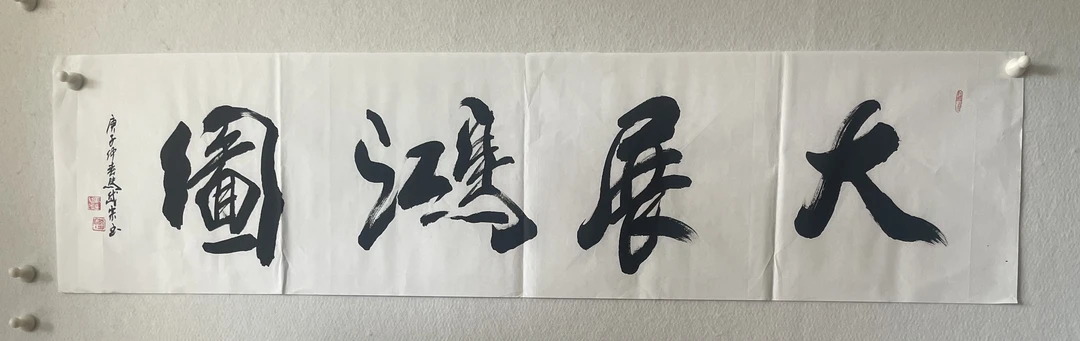 大展鴻圖
庚子仲春